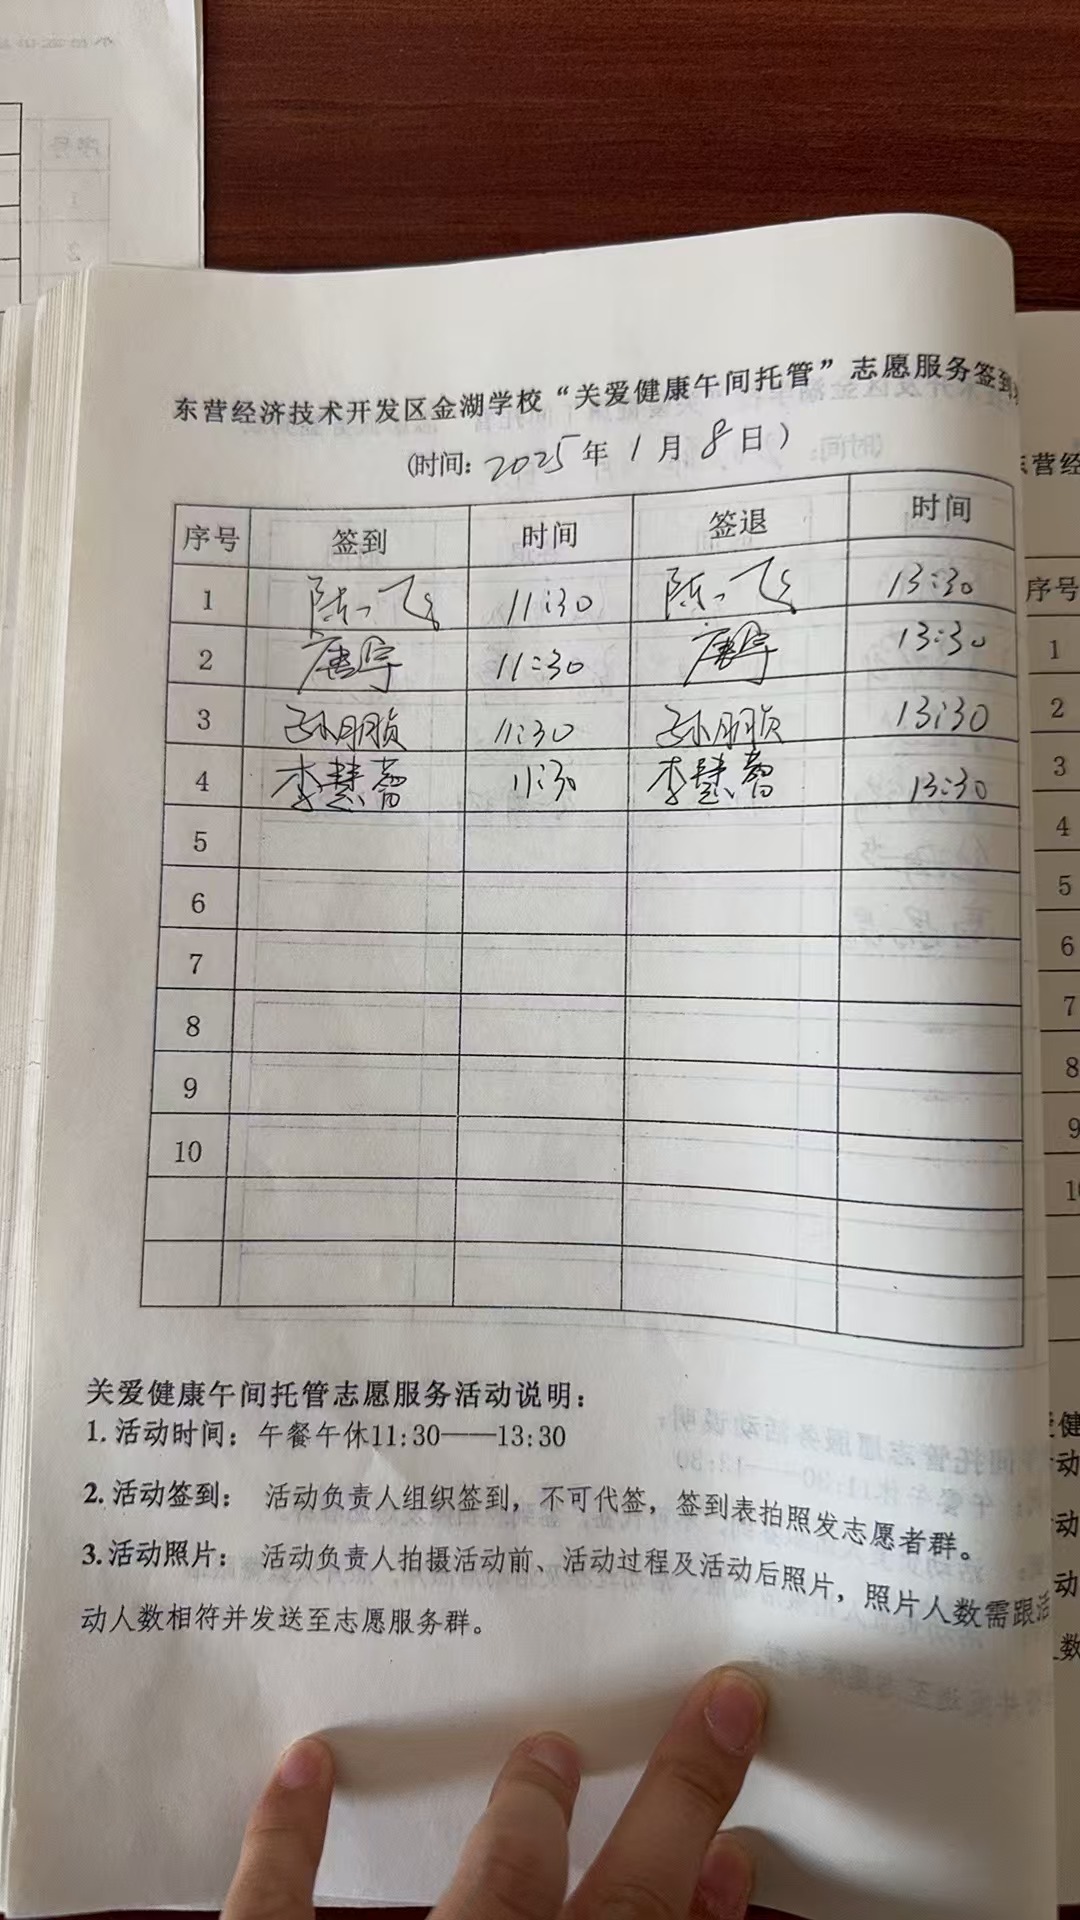 东营经济技术开发区金湖学校“关爱健康午间托管”志愿服务签到
(时间: 2025年1月8日)
序号 签到 时间 签退 时间
1 陈飞 11:30 陈飞 13:30
2 唐宇 11:30 唐宇 13:30
3 孙朋贞 11:30 孙朋贞 13:30
4 李慧蕾 11:30 李慧蕾 13:30
5
6
7
8
9
10
关爱健康午间托管志愿服务活动说明:
1.活动时间: 午餐午休11:30——13:30
2.活动签到: 活动负责人组织签到, 不可代签, 签到表拍照发志愿者群。
3.活动照片: 活动负责人拍摄活动前、活动过程及活动后照片, 照片人数需跟活
动人数相符并发送至志愿服务群。
序号
1
2
3
4
5
6
7
8
9